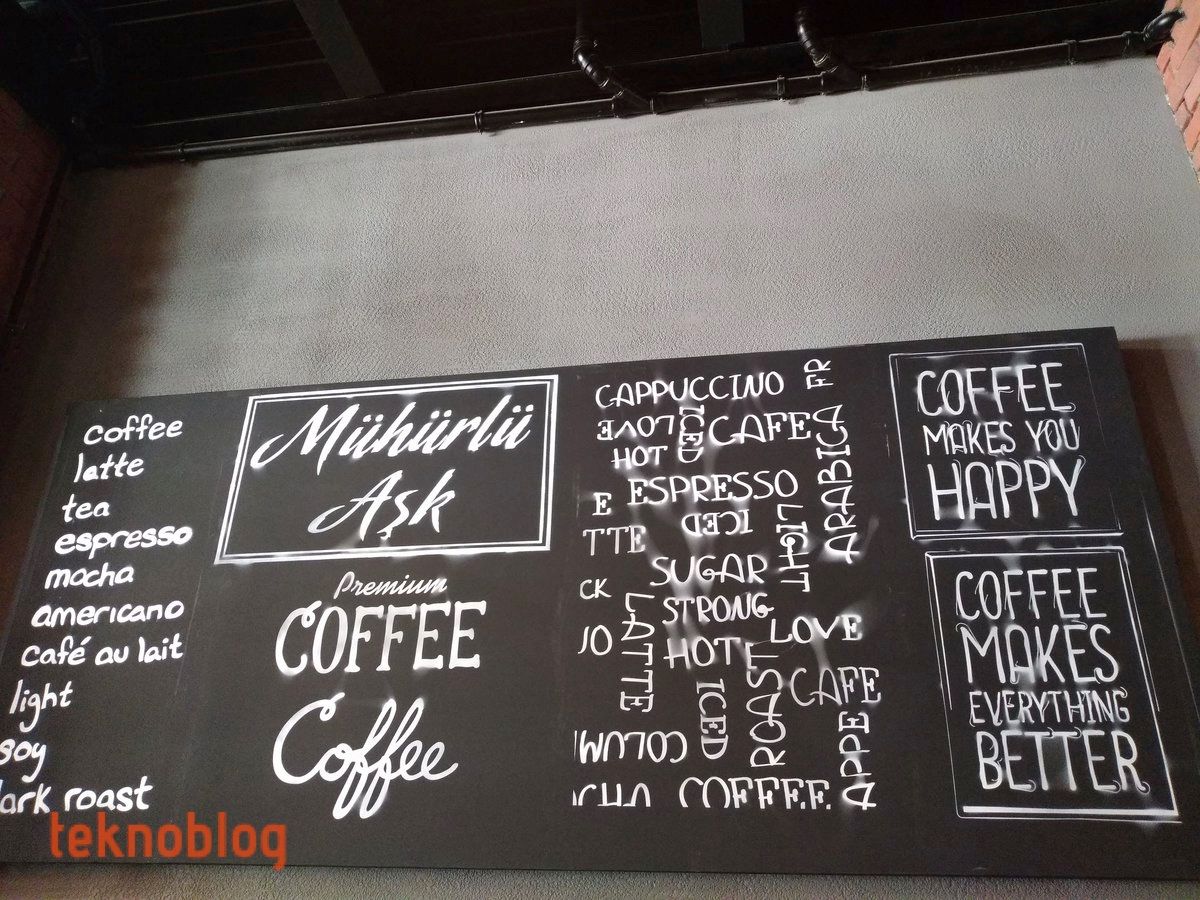 coffee
latte
tea
espresso
mocha
americano
café au lait
light
soy
ark roast
Mühürlü
Aşk
Premium
COFFEE
Coffee
CAPPUCCINO
FR
LOVE
ICED
CAFE
HOT
ARABICA
E
ESPRESSO
TTE
ICED
LIGHT
CK
SUGAR
STRONG
LATTE
JO
HOT
LOVE
ICED
ROAST
CAFE
COLUM
APPE
COFFEE
COFFEE
MAKES YOU
HAPPY
COFFEE
MAKES
EVERYTHING
BETTER
teknoblog